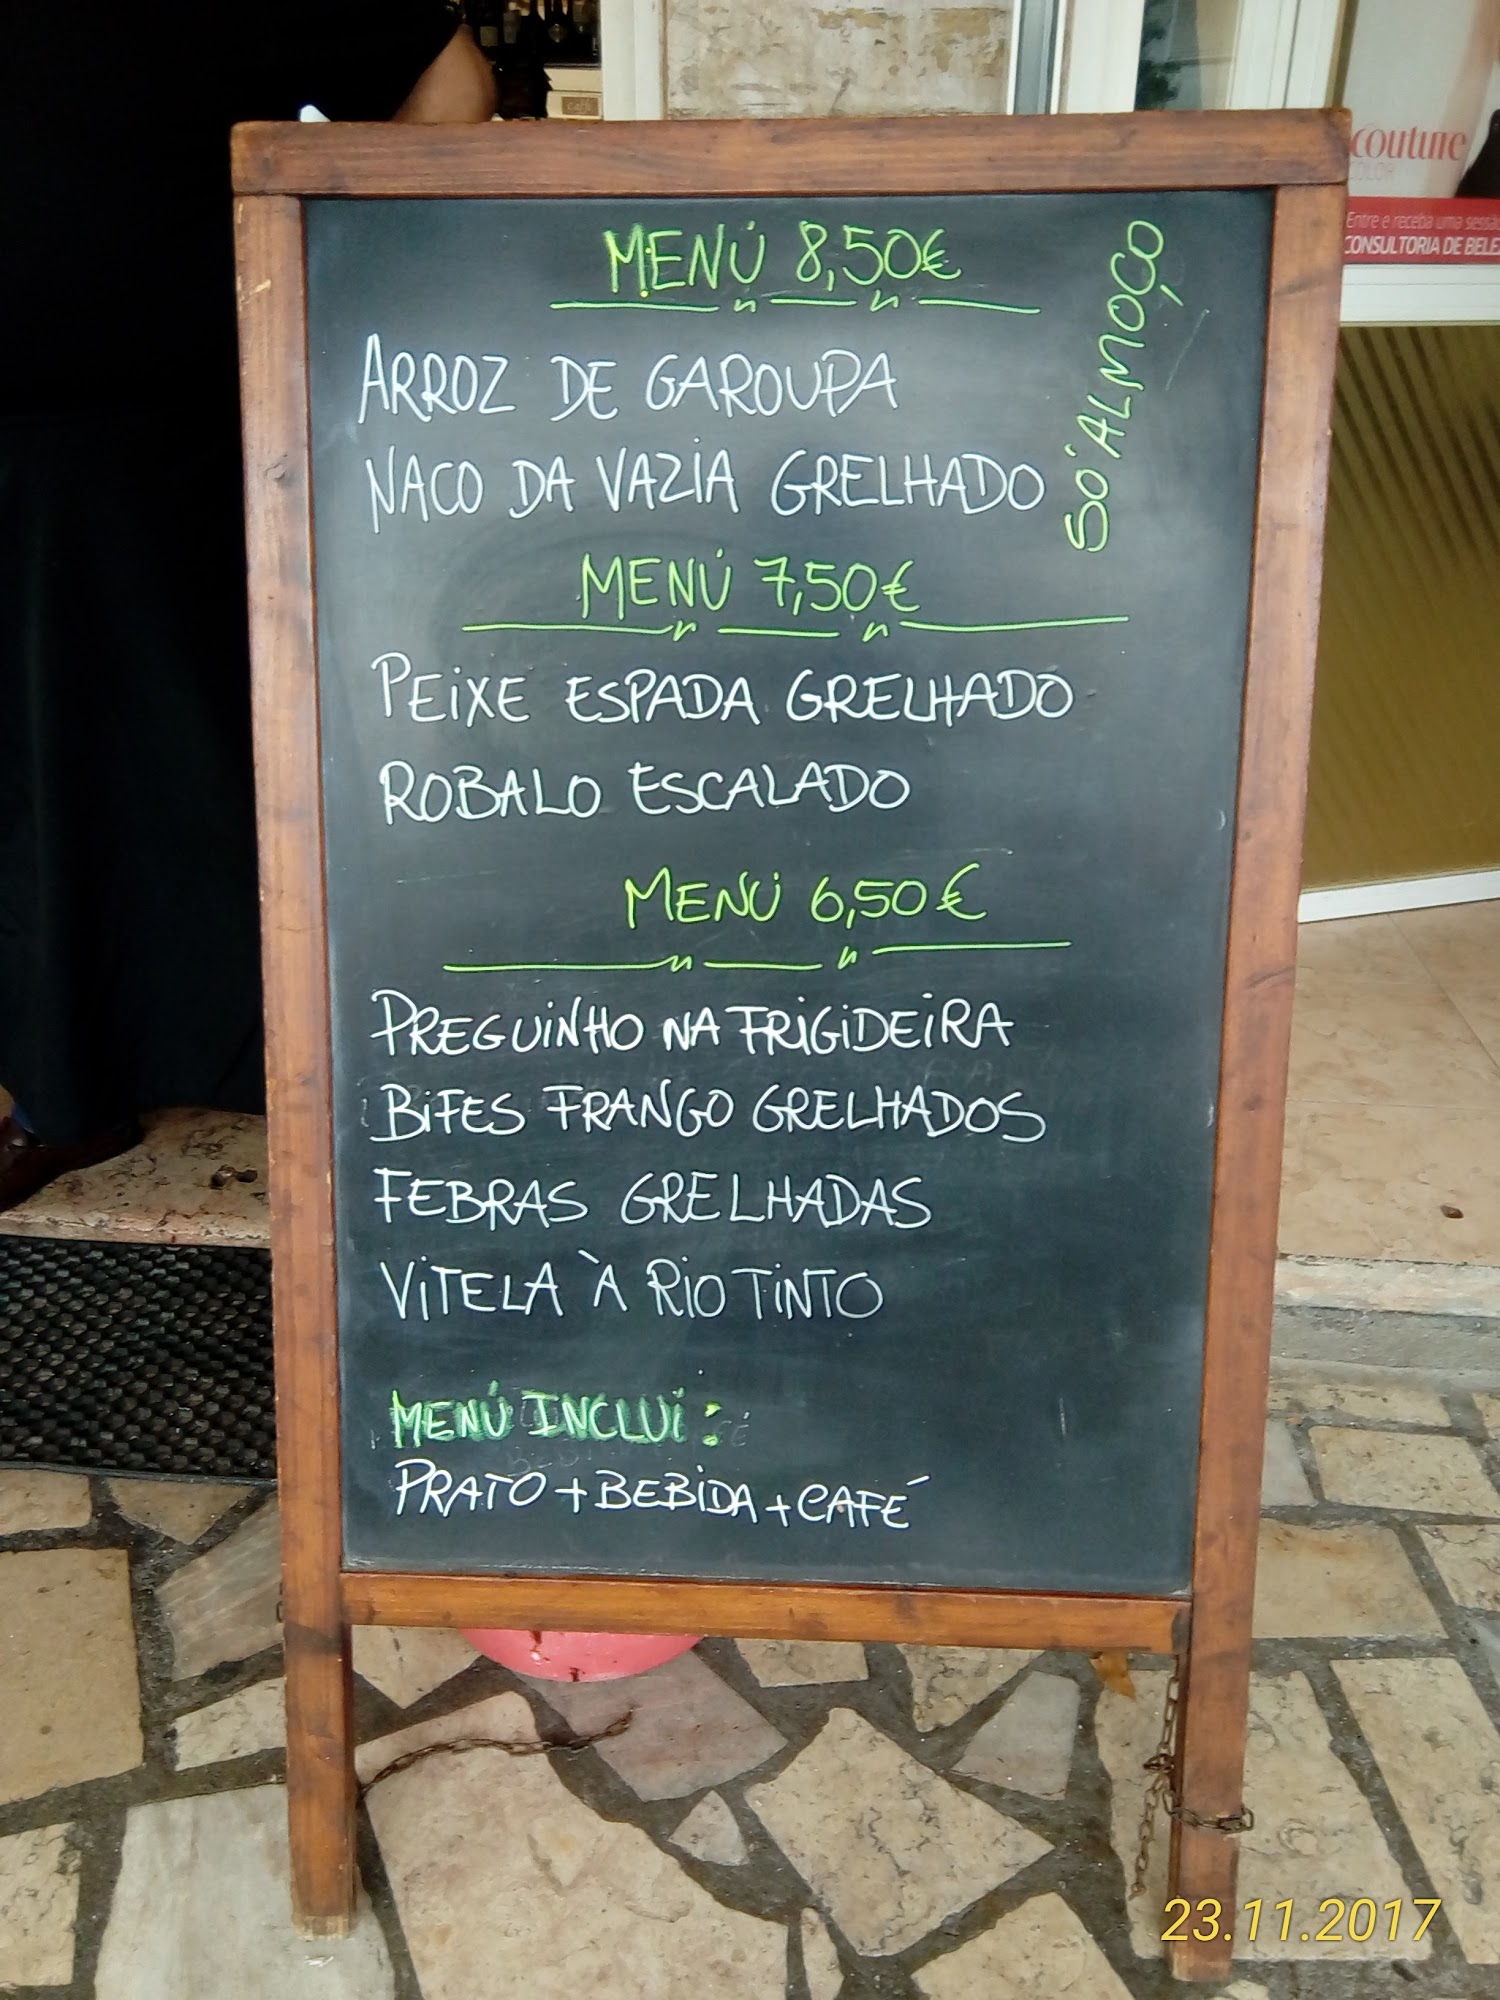 MENÚ 8,50€
SÓ ALMOÇO
ARROZ DE GAROUPA
NACO DA VAZIA GRELHADO
MENÚ 7,50€
PEIXE ESPADA GRELHADO
ROBALO ESCALADO
MENÚ 6,50€
PREGUINHO NA FRIGIDEIRA
BIFES FRANGO GRELHADOS
FEBRAS GRELHADAS
VITELA À RIO TINTO
MENÚ INCLUI:
PRATO + BEBIDA + CAFÉ
couture
Entre e receba uma
CONSULTORIA DE
23.11.2017